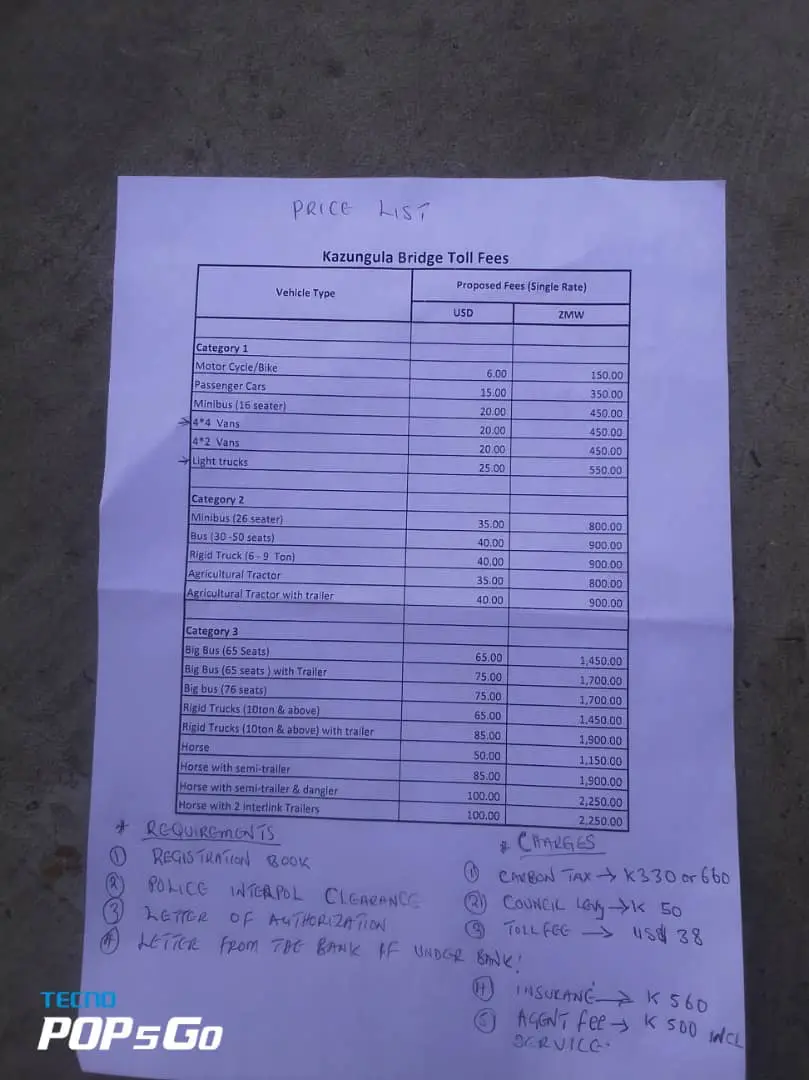 PRICE LIST
Kazungula Bridge Toll Fees
Vehicle Type Proposed Fees (Single Rate)
USD ZMW
Category 1
Motor Cycle/Bike 6.00 150.00
Passenger Cars 15.00 350.00
Minibus (16 seater) 20.00 450.00
→ 4*4 Vans 20.00 450.00
4*2 Vans 20.00 450.00
→ Light trucks 25.00 550.00
Category 2
Minibus (26 seater) 35.00 800.00
Bus (30 -50 seats) 40.00 900.00
Rigid Truck (6 - 9 Ton) 40.00 900.00
Agricultural Tractor 35.00 800.00
Agricultural Tractor with trailer 40.00 900.00
Category 3
Big Bus (65 Seats) 65.00 1,450.00
Big Bus (65 seats ) with Trailer 75.00 1,700.00
Big bus (76 seats) 75.00 1,700.00
Rigid Trucks (10ton & above) 65.00 1,450.00
Rigid Trucks (10ton & above) with trailer 85.00 1,900.00
Horse 50.00 1,150.00
Horse with semi-trailer 85.00 1,900.00
Horse with semi-trailer & dangler 100.00 2,250.00
Horse with 2 interlink Trailers 100.00 2,250.00
* REQUIREMENTS
① REGISTRATION BOOK
② POLICE INTERPOL CLEARANCE
③ LETTER OF AUTHORIZATION
④ LETTER FROM THE BANK IF UNDER BANK!
* CHARGES
① CARBON TAX → K330 or 660
② COUNCIL Levy → K 50
③ TOLL FEE → US$ 38
④ INSURANE → K 560
⑤ AGENT FEE → K 500 INCL
SERVICE.
TECNO
POP5Go